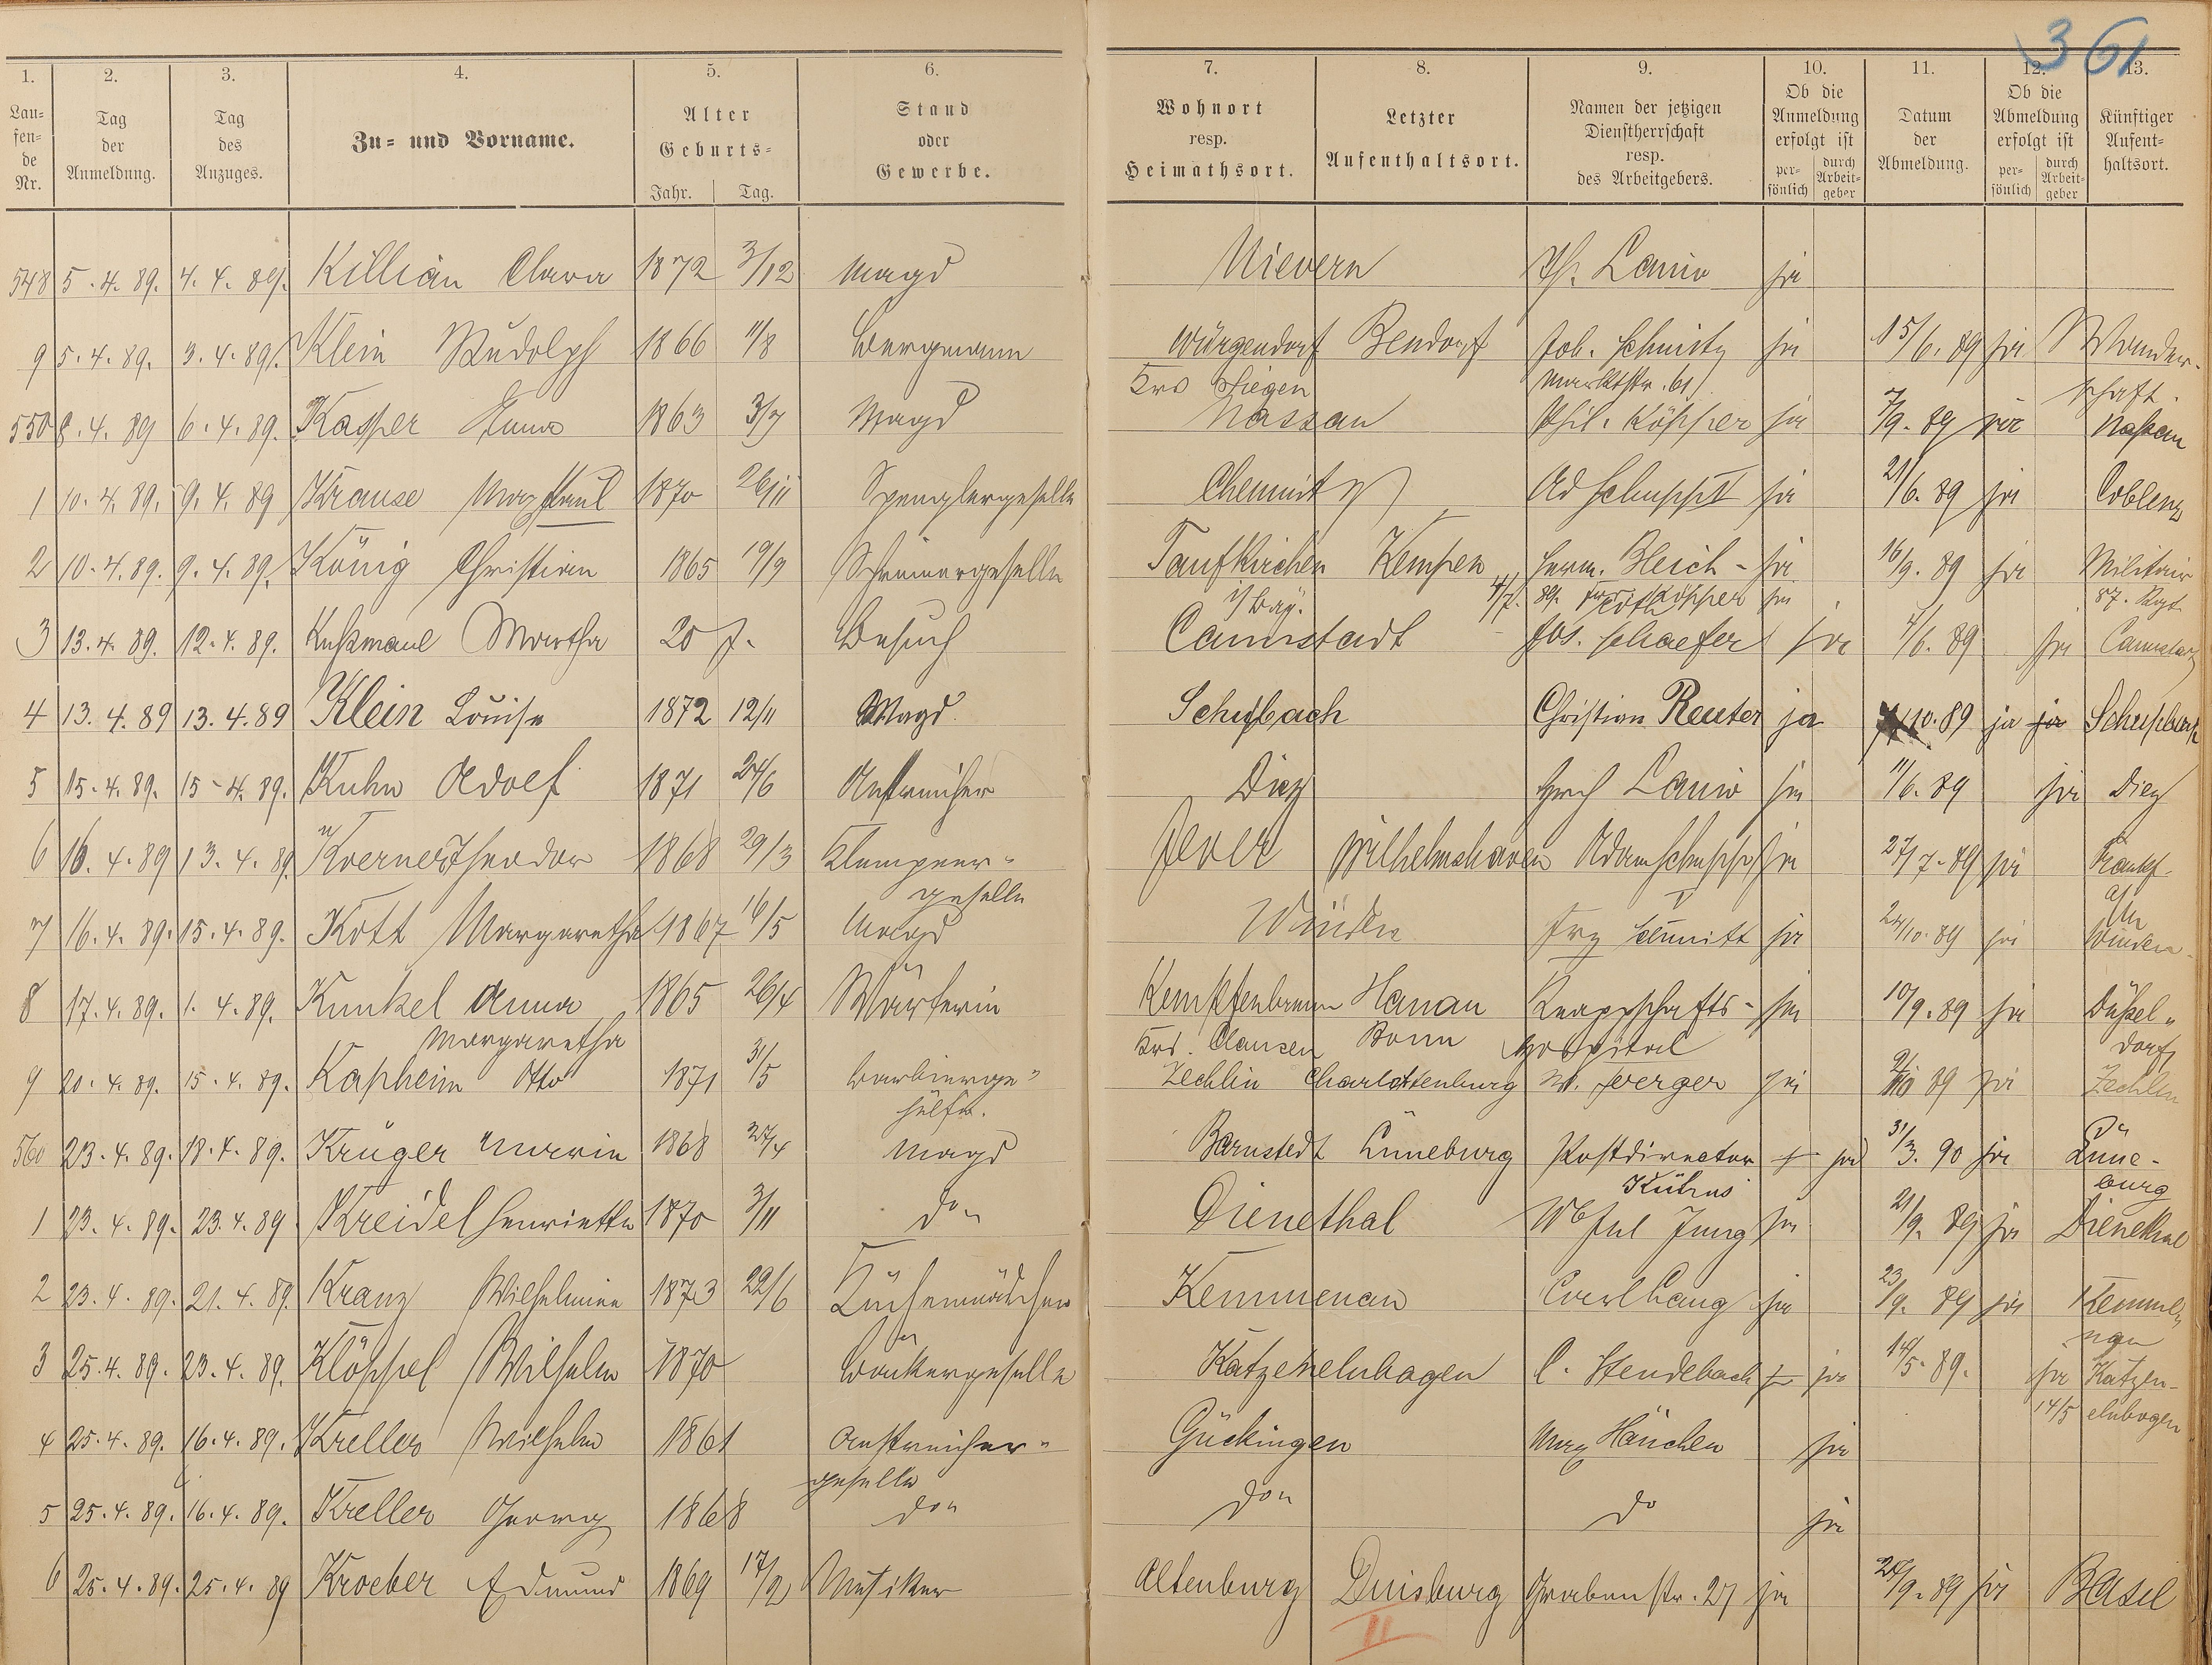 361
1. 2. 3. 4. 5. 6. 7. 8. 9. 10. 11. 12. 13.
Laufende Nr. | Tag der Anmeldung. | Tag des Anzuges. | Zu- und Vorname. | Alter Geburts- Jahr. Tag. | Stand oder Gewerbe. | Wohnort resp. Heimathsort. | Letzter Aufenthaltsort. | Namen der jetzigen Dienstherrschaft resp. des Arbeitgebers. | Ob die Anmeldung erfolgt ist persönlich durch Arbeitgeber | Datum der Abmeldung. | Ob die Abmeldung erfolgt ist persönlich durch Arbeitgeber | Künftiger Aufenthaltsort.
548 5.4.89. 4.4.89. Killian Clara 1872 3/12 Magd Nievern ja
9 5.4.89. 3.4.89. Klein Rudolph 1866 11/8 Bergmann Würgendorf Bendorf Joh. Schmitz ja 15/6.89 ja Wander-
Krs Siegen Marktstr. 61 schaft.
550 8.4.89 6.4.89. Kasper Anna 1863 3/7 Magd Nassau Phil.Köpper ja 7/9.89 ja Naßau
1 10.4.89. 9.4.89 Krause Max Paul 1870 26/11 Spenglergeselle Chemnitz Ad Schupp II ja 21/6.89 ja Coblenz
2 10.4.89. 9.4.89. König Christian 1865 19/9 Schreinergeselle Taufkirchen Kempen Herm. Bleich- ja 16/9.89 ja Militair
i/ Bay. 4/7. 89. Köpper ja 87. Rgt.
3 13.4.89. 12.4.89. Kußmaul Martha 20 J. Besuch Cannstadt Jos. Schaefer ja 4/6.89 ja Cannstadt
4 13.4.89 13.4.89 Klein Louise 1872 12/11 Magd. Schupbach Christian Reuter ja 10.89 ja ja Schupbach
5 15.4.89. 15-4.89. Kuhn Adolf 1871 24/6 Anstreicher Diez Hrch Lanio ja 11/6.89 ja Diez
6 16.4.89 13.4.89. Koerner Theodor 1868 29/3 Klempner- Jever Wilhelmshaven Adam Schupp ja 27/7.89 ja Frankf.
geselle V a/M
7 16.4.89. 15.4.89. Kott Margaretha 1867 16/5 Magd Winden Frz Schmitt ja 24/10.89 ja Winden
8 17.4.89. 1.4.89. Kunkel Anna 1865 26/4 Wärterin Kempfenbrunn Hanau Knappschafts- ja 10/9.89 ja Düßel-
Margaretha Bonn Hospital dorf
9 20.4.89. 15.4.89. Kapheim Otto 1871 31/5 Barbierge- Zechlin Charlottenburg ja 89 ja Zechlin
hülfe.
560 23.4.89. 18.4.89. Krüger Maria 1868 27/4 Magd Barnstedt Lüneburg Postdirector ja 31/3.90 ja Lüne-
burg
1 23.4.89. 23.4.89 Kreidel Henriette 1870 3/11 do Dienethal Jung ja 21/9.89 ja Dienethal
2 23.4.89. 21.4.89. Kranz Wilhelmine 1873 22/6 Küchenmädchen Kemmenau Carl Lang ja 23/9.89 ja
3 25.4.89. 23.4.89. Klöppel Wilhelm 1870 Bäckergeselle Katzenelnbogen C. Stendebach ja 14/5.89. ja Katzen-
14/5 elnbogen
4 25.4.89. 16.4.89. Kreller Wilhelm 1861 Anstreicher- Gückingen ja
geselle
5 25.4.89. 16.4.89. Kreller Georg 1868 do do do ja
6 25.4.89. 25.4.89 Kroeber Edmund 1869 17/2 Musiker Altenburg Duisburg Grabenstr. 27 ja 24/9.89 ja Basel
II